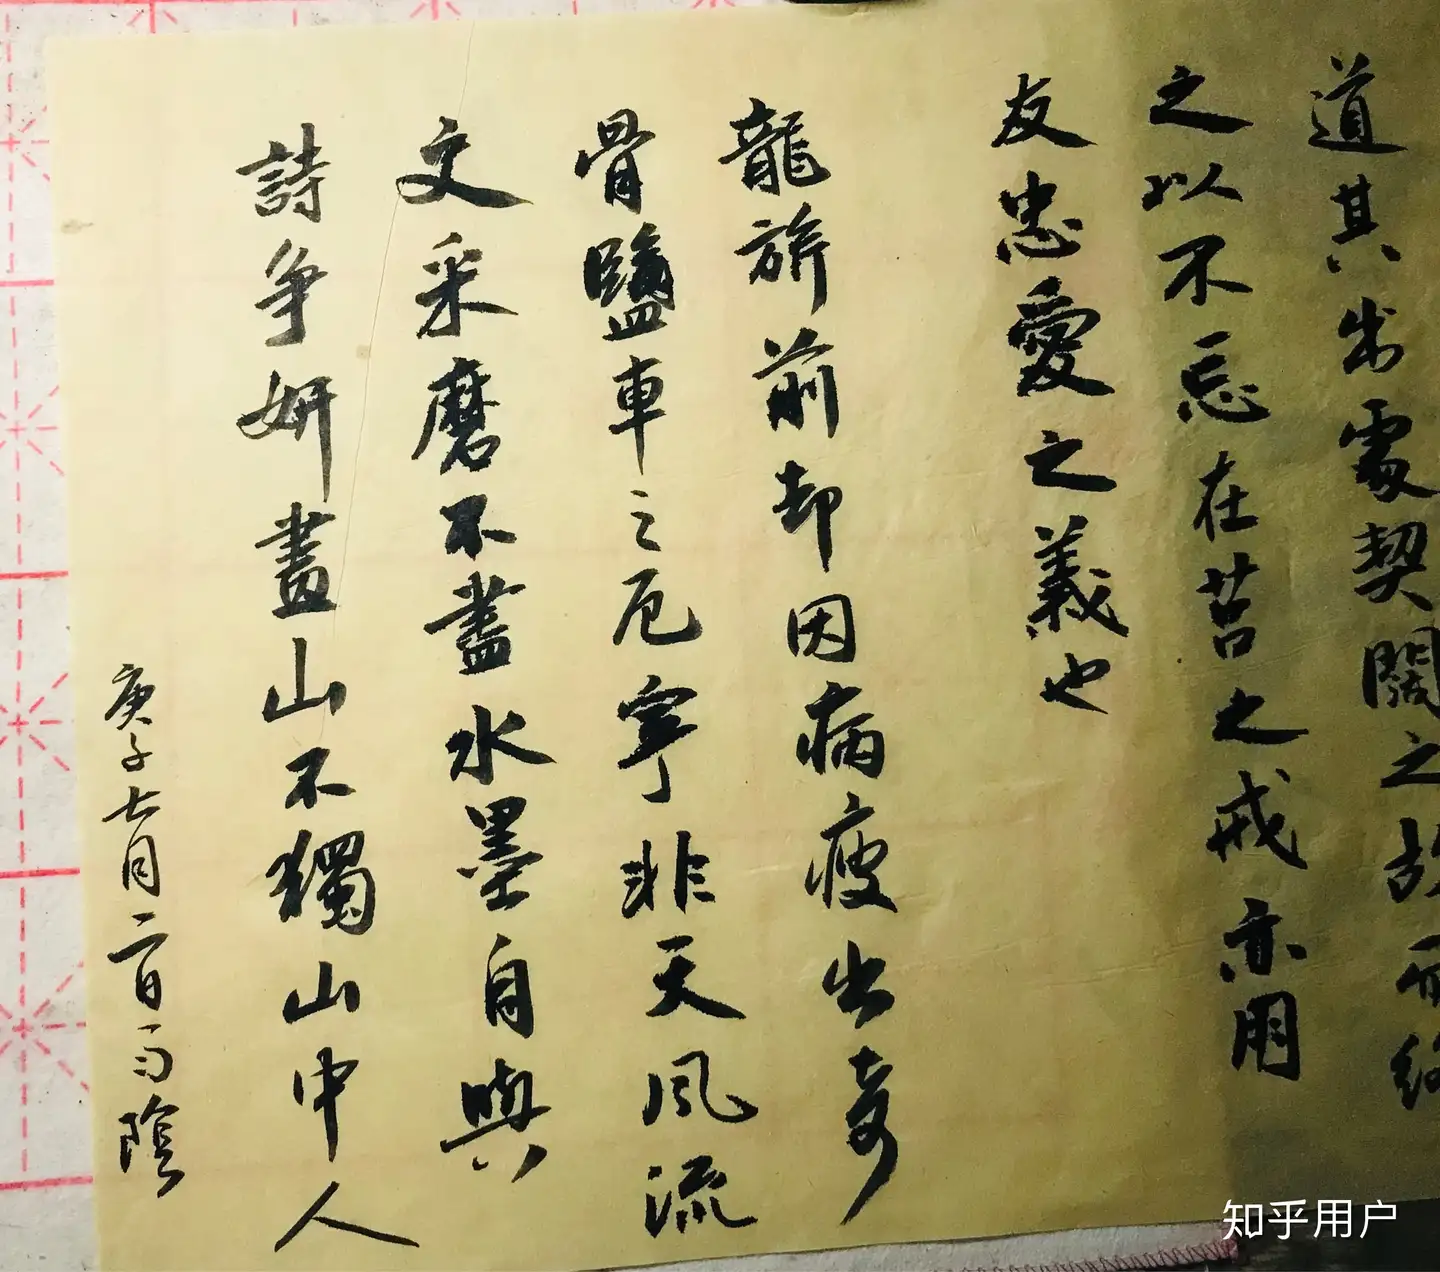 道其出處契闊之故而終
之以不忘在莒之戒亦朋
友忠愛之義也
龍旂前却因病瘦出奇
骨鹽車之厄寧非天風流
文采磨不盡水墨自與
詩争妍畫山不獨山中人
庚子七月二日雨陰
知乎用户